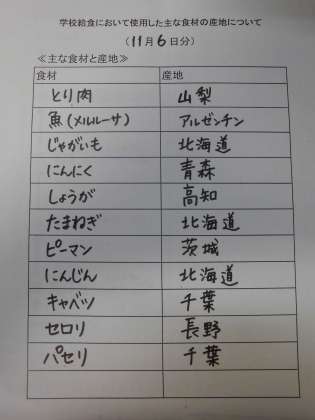 学校給食において使用した主な食材の産地について
(11月6日分)
≪主な食材と産地≫
食材 産地
とり肉 山梨
魚(メルルーサ) アルゼンチン
じゃがいも 北海道
にんにく 青森
しょうが 高知
たまねぎ 北海道
ピーマン 茨城
にんじん 北海道
キャベツ 千葉
セロリ 長野
パセリ 千葉